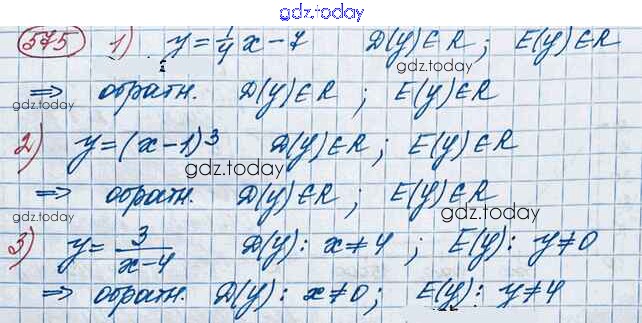 gdz.today
575 1) y = 1/4 x - 7 D(y) ∈ R ; E(y) ∈ R
gdz.today
⇒ обратн. D(y) ∈ R ; E(y) ∈ R
gdz.today gdz.today
2) y = (x - 1)³ D(y) ∈ R ; E(y) ∈ R
gdz.today
⇒ обратн. D(y) ∈ R ; E(y) ∈ R
gdz.today gdz.today
3) y = 3/(x-4) D(y): x ≠ 4 ; E(y): y ≠ 0
⇒ обратн. D(y): x ≠ 0 ; E(y): y ≠ 4